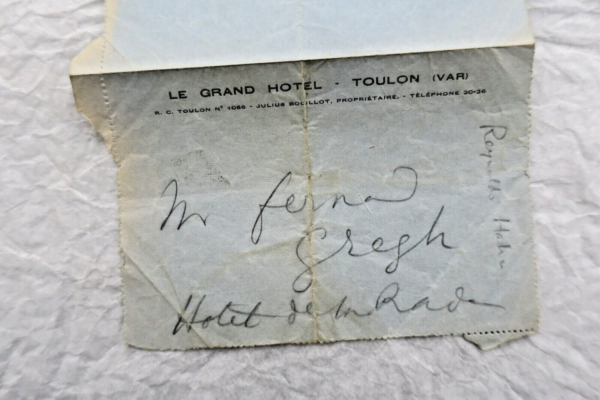 LE GRAND HOTEL - TOULON (VAR)
R. C. TOULON Nº 1066 - JULIUS BOUILLOT, PROPRIÉTAIRE. - TÉLÉPHONE 20-36
Mr Fernad
Gregh
Hotel de la Rade
Reynaldo Hahn